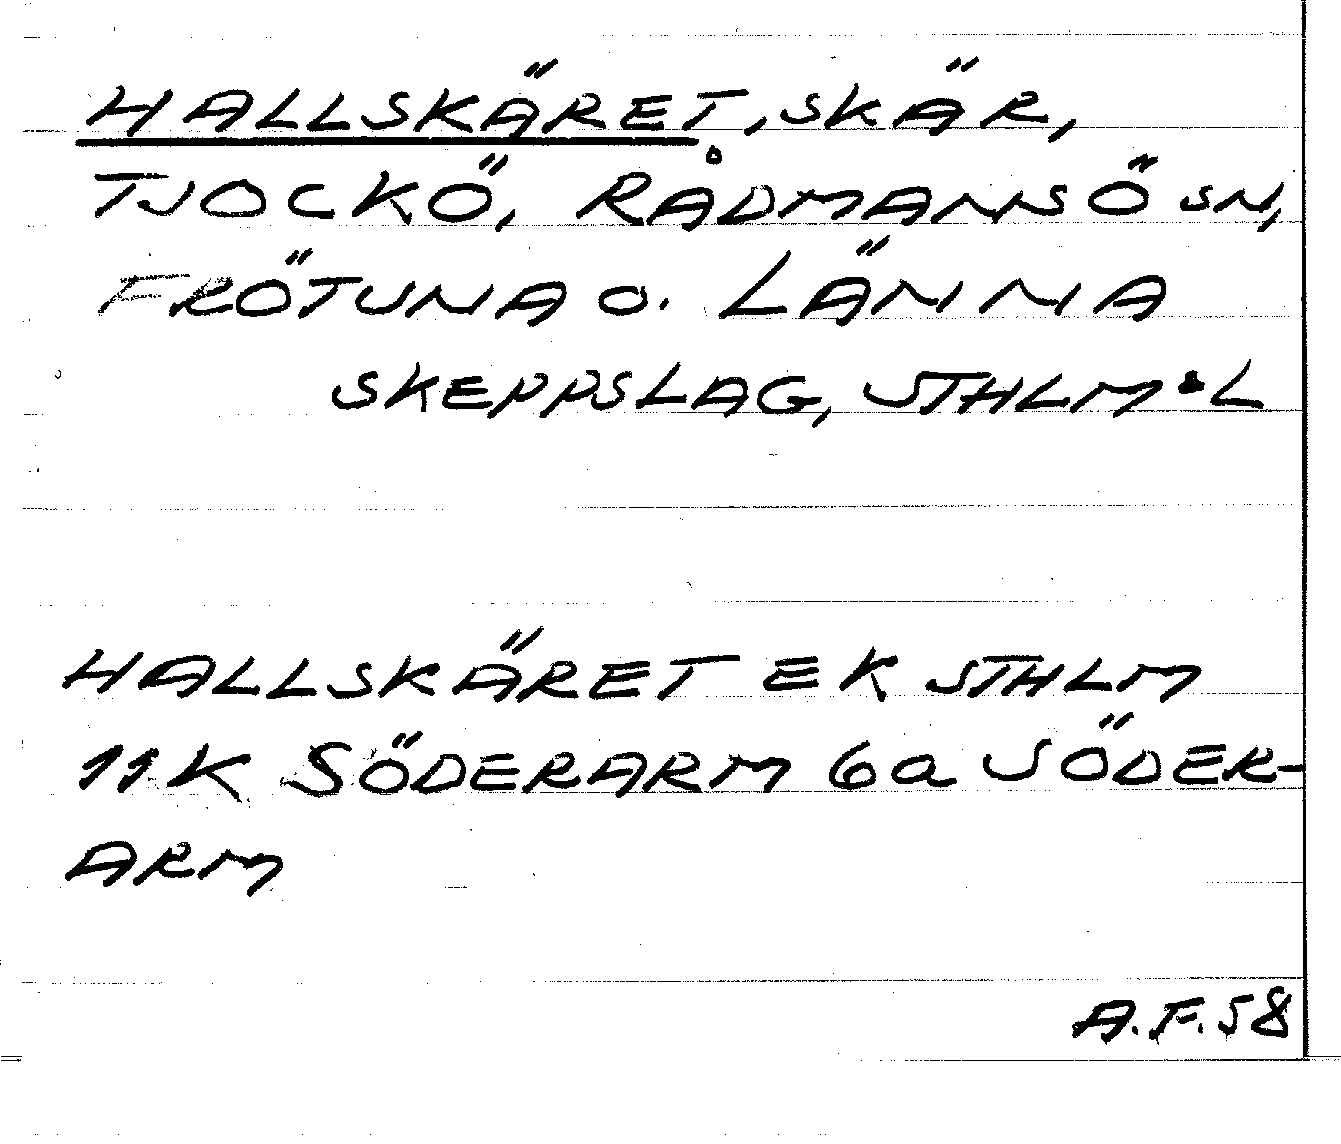 HALLSKÄRET, SKÄR,
TJOCKÖ, RÅDMANSÖ SN,
FRÖTUNA O. LÄNNA
SKEPPSLAG, STHLM•L
HALLSKÄRET EK STHLM
11K SÖDERARM 6a SÖDER-
ARM
A.F.58